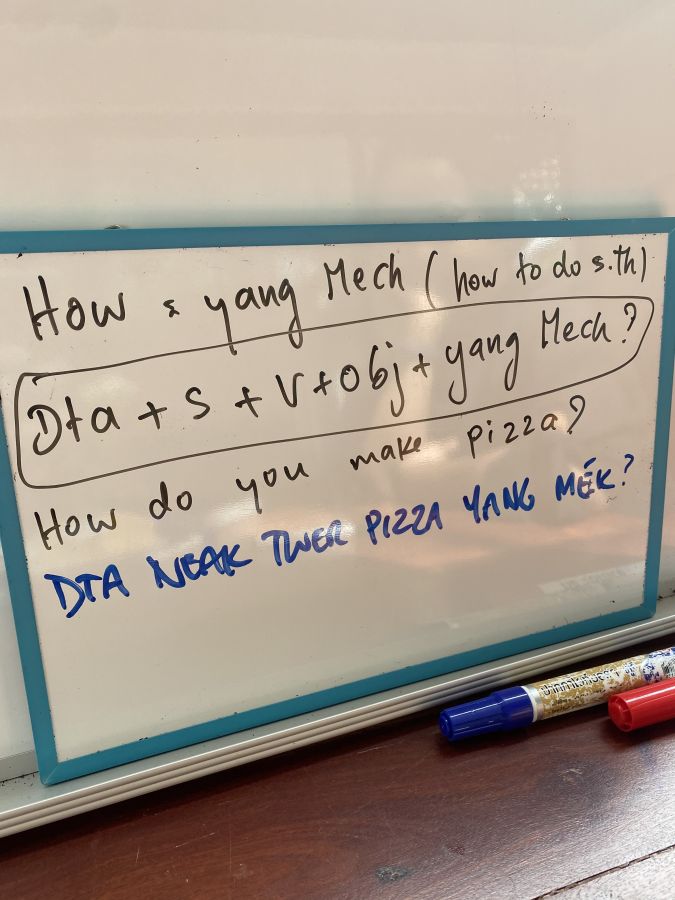 How : yang Mech (how to do s.th)
Dta + S + V + Obj + yang Mech?
How do you make pizza?
DTA NEAK TWER PIZZA YANG MÉK?